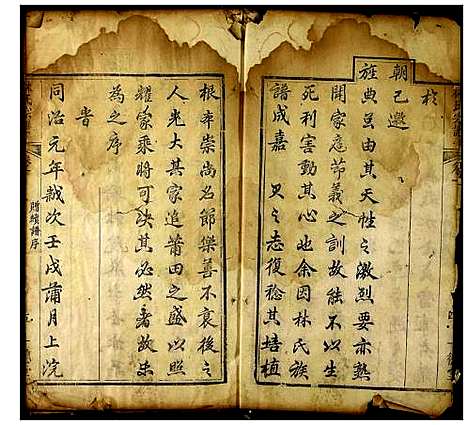 於
朝已邀
旌典是由其天性之激烈要亦熟
聞家庭節義之訓故能不以生
死利害動其心也余因林氏族
譜成嘉其之志復稔其培植
根本崇尚名節樂善不衰後之
人光大其家追莆田之盛以照
耀家乘將可决其必然者故未
為之序
旹
同治元年歲次壬戌蒲月上浣
贈續譜序